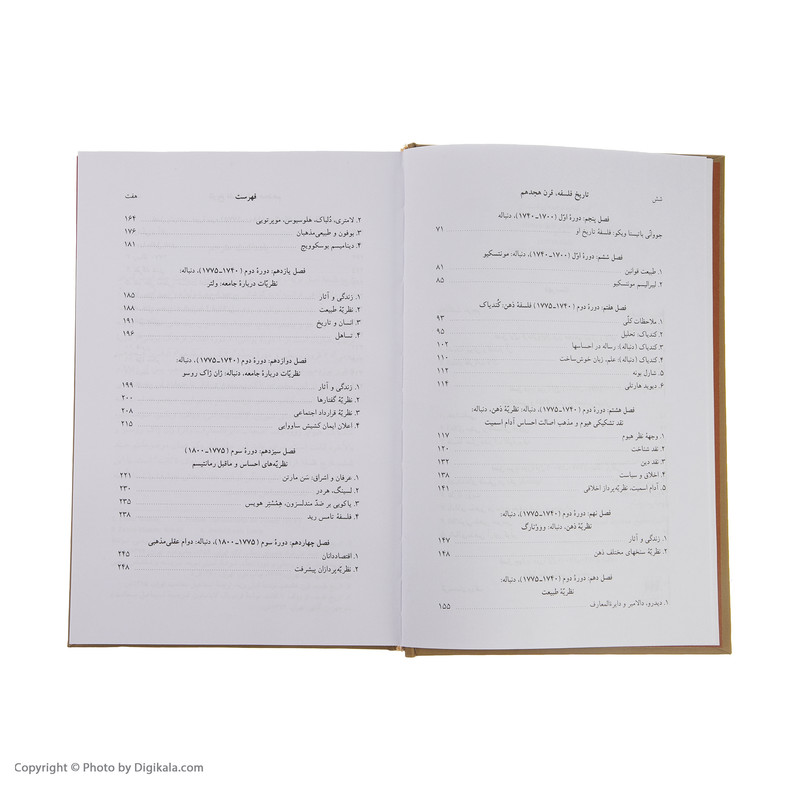 شش
تاریخ فلسفه، قرن هجدهم
فصل پنجم: دورهٔ اوّل (۱۷۰۰-۱۷۴۰)، دنباله
جووانّی باتیستا ویکو: فلسفهٔ تاریخ او ۷۱
فصل ششم: دورهٔ اوّل (۱۷۰۰-۱۷۴۰)، دنباله: مونتسکیو
۱. طبیعت قوانین ۸۱
۲. لیبرالیسم مونتسکیو ۸۵
فصل هفتم: دورهٔ دوم (۱۷۴۰-۱۷۷۵) فلسفهٔ ذهن: کُندیاک
۱. ملاحظات کلّی ۹۳
۲. کندیاک: تحلیل ۹۵
۳. کندیاک (دنباله): رساله در احساسها ۱۰۲
۴. کندیاک (دنباله): علم، زبان خوش‌ساخت ۱۱۰
۵. شارل بونه ۱۱۲
۶. دیوید هارتلی ۱۱۴
فصل هشتم: دورهٔ دوم (۱۷۴۰-۱۷۷۵)، دنباله: نظریّهٔ ذهن، دنباله:
نقد تشکیکی هیوم و مذهب اصالت احساس آدام اسمیت
۱. وجههٔ نظر هیوم ۱۱۷
۲. نقد شناخت ۱۲۰
۳. نقد دین ۱۳۲
۴. اخلاق و سیاست ۱۳۸
۵. آدام اسمیت، نظریّه‌پرداز اخلاقی ۱۴۱
فصل نهم: دورهٔ دوم (۱۷۴۰-۱۷۷۵)، دنباله:
نظریّهٔ ذهن، دنباله: ووونارگ
۱. زندگی و آثار ۱۴۷
۲. نظریّهٔ سنخهای مختلف ذهن ۱۴۸
فصل دهم: دورهٔ دوم (۱۷۴۰-۱۷۷۵)، دنباله:
نظریّهٔ طبیعت
۱. دیدرو، دالامبر و دایرةالمعارف ۱۵۵
فهرست
هفت
۲. لامتری، دُلباک، هلوسیوس، موپرتویی ۱۶۴
۳. بوفون و طبیعی‌مذهبان ۱۷۶
۴. دینامیسم بوسکوویچ ۱۸۱
فصل یازدهم: دورهٔ دوم (۱۷۴۰-۱۷۷۵)، دنباله:
نظریّات دربارهٔ جامعه: ولتر
۱. زندگی و آثار ۱۸۵
۲. نظریّهٔ طبیعت ۱۸۸
۳. انسان و تاریخ ۱۹۱
۴. تساهل ۱۹۶
فصل دوازدهم: دورهٔ دوم (۱۷۴۰-۱۷۷۵)، دنباله:
نظریّات دربارهٔ جامعه، دنباله: ژان ژاک روسو
۱. زندگی و آثار ۱۹۹
۲. نظریّهٔ گفتارها ۲۰۰
۳. نظریّهٔ قرارداد اجتماعی ۲۰۸
۴. اعلان ایمان کشیش ساووایی ۲۱۵
فصل سیزدهم: دورهٔ سوم (۱۷۷۵-۱۸۰۰)
نظریّه‌های احساس و ماقبل رمانتیسم
۱. عرفان و اشراق: سَن مارتن ۲۲۱
۲. لسینگ، هردر ۲۳۰
۳. یاکوبی بر ضدّ مندلسزون، هِمْستِر هویس ۲۳۵
۴. فلسفهٔ تامس رید ۲۳۸
فصل چهاردهم: دورهٔ سوم (۱۷۷۵-۱۸۰۰)، دنباله: دوام عقلی‌مذهبی
۱. اقتصاددانان ۲۴۵
۲. نظریّه‌پردازان پیشرفت ۲۴۸
Copyright © Photo by Digikala.com